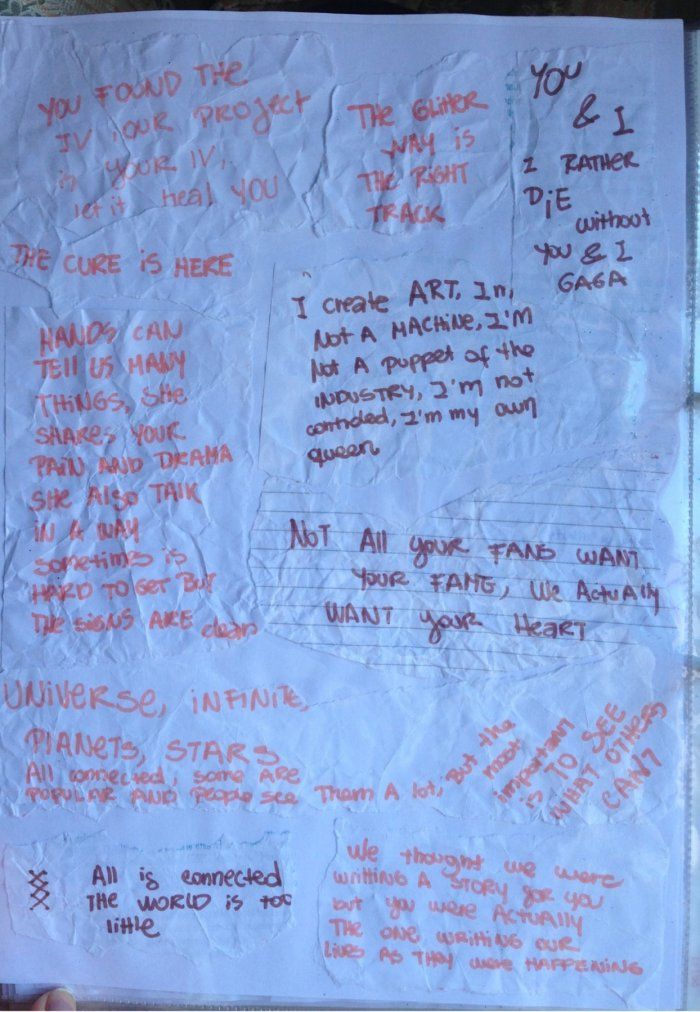 YOU FOUND THE
IV, OUR PROJECT
is YOUR IV,
let it heal YOU
THE GLITTER
WAY is
THE RIGHT
TRACK
YOU
& I
I RATHER
DiE
without
YOU & I
GAGA
THE CURE is HERE
I create ART, I'm
Not A MACHINE, I'M
Not A puppet of the
INDUSTRY, I'm not
controled, I'm my own
queen
HANDS CAN
TEll US MANY
THiNGS, SHE
SHARES YOUR
PAiN AND DRAMA
SHE Also TAlK
iN A WAY
sometimes is
HARD TO GET BUT
THE SiGNS ARE clear
NoT All youR FANS WANT
YOUR FAME, We ActuAlly
WANT youR HeArt
UNiVeRSE, iNFiNiTE,
PlANETS, STARS
All connected, some ARE
POPULAR AND People see Them A lot, But the
most
important
is TO SEE
WHAT OTHERS
CAN'T
All is connected
THE WORLD is too
little
We thought we were
WRiTTiNG A STORY for you
but you were ACTUAlly
THE ONE WRiTTiNG OUR
LiVES AS THEY were HAPPENiNG